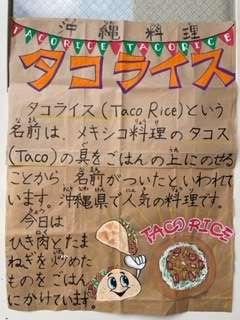 沖縄料理
TACORICE TACORICE
タコライス
タコライス(Taco Rice)という
名前は、メキシコ料理のタコス
(Taco)の具をごはんの上にのせる
ことから 名前がついたといわれて
います。沖縄県で人気の料理です。
今日は
ひき肉とたま
ねぎを炒めた
ものをごはん
にかけています。
TACO RICE